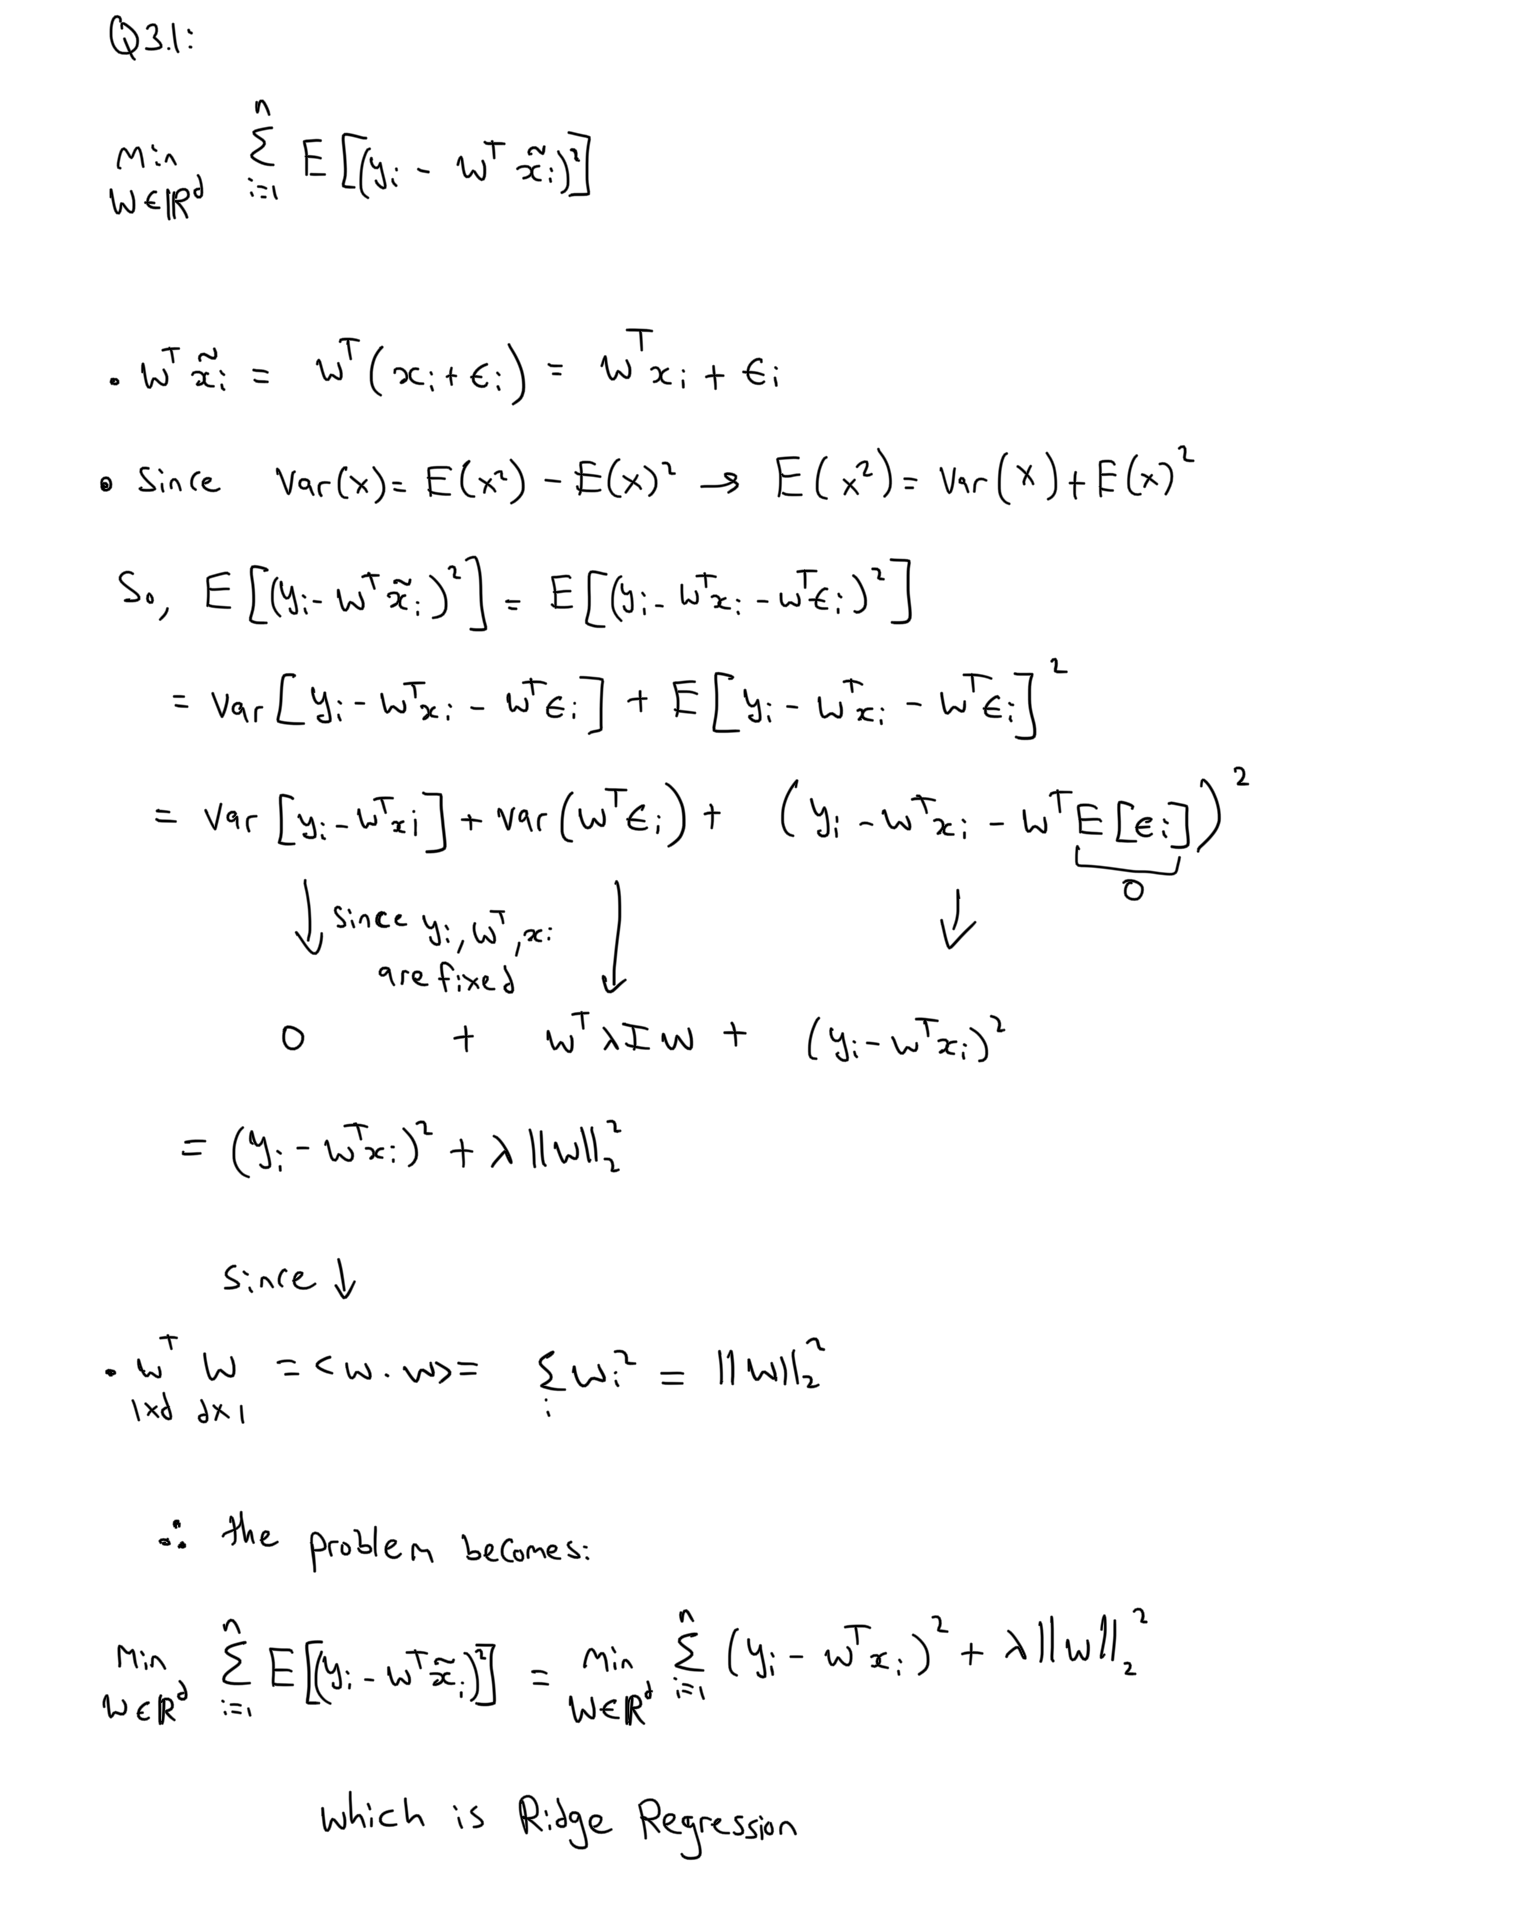 Q3.1:
min_{W∈ℝ^d} Σ_{i=1}^{n} E[(y_i - w^T x̃_i)²]
• w^T x̃_i = w^T(x_i + ϵ_i) = w^T x_i + ϵ_i
• Since Var(x) = E(x²) - E(x)² → E(x²) = Var(x) + E(x)²
So, E[(y_i - w^T x̃_i)²] = E[(y_i - w^T x_i - w^T ϵ_i)²]
= Var[y_i - w^T x_i - w^T ϵ_i] + E[y_i - w^T x_i - w^T ϵ_i]²
= Var[y_i - w^T x_i] + Var(w^T ϵ_i) + (y_i - w^T x_i - w^T E[ϵ_i])²
0
↓ since y_i, w^T, x_i ↓ ↓
are fixed
0 + w^T λI w + (y_i - w^T x_i)²
= (y_i - w^T x_i)² + λ||w||₂²
since ↓
• w^T w = <w . w> = Σ_i w_i² = ||w||₂²
1×d d×1
∴ the problem becomes:
min_{W∈ℝ^d} Σ_{i=1}^{n} E[(y_i - w^T x̃_i)²] = min_{W∈ℝ^d} Σ_{i=1}^{n} (y_i - w^T x_i)² + λ||w||₂²
which is Ridge Regression